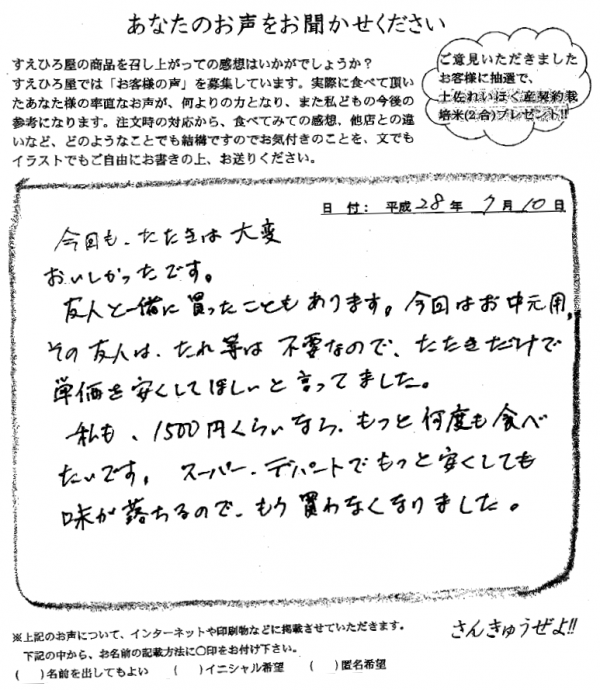 あなたのお声をお聞かせください
すえひろ屋の商品を召し上がっての感想はいかがでしょうか？
すえひろ屋では「お客様の声」を募集しています。実際に食べて頂い
たあなた様の率直なお声が、何よりの力となり、また私どもの今後の
参考になります。注文時の対応から、食べてみての感想、他店との違
いなど、どのようなことでも結構ですのでお気付きのことを、文でも
イラストでもご自由にお書きの上、お送りください。
ご意見いただきました
お客様に抽選で、
土佐れいほく産契約栽
培米(2合)プレゼント!!
日 付： 平成 28 年 7 月 10 日
今回も、たたきは大変
おいしかったです。
友人と一緒に買ったこともあります。今回はお中元用。
その友人は、たれ等は不要なので、たたきだけで
単価を安くしてほしいと言ってました。
私も、1500円くらいなら、もっと何度も食べ
たいです。スーパー、デパートでもっと安くしても
味が落ちるので、もう買わなくなりました。
※上記のお声について、インターネットや印刷物などに掲載させていただきます。
下記の中から、お名前の記載方法に〇印をお付け下さい。
(　)名前を出してもよい　(　)イニシャル希望　(　)匿名希望
さんきゅうぜよ!!